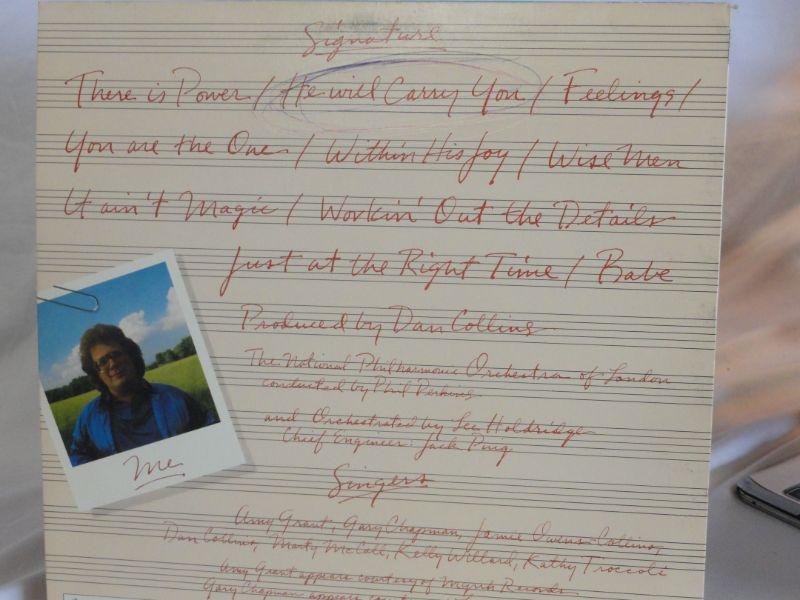 Signature
There is Power / He will Carry You / Feelings /
You are the One / Within His Joy / Wise Men
It ain't Magic / Workin' Out the Details
Just at the Right Time / Babe
Produced by Dan Collins
The National Philharmonic Orchestra of London
conducted by Phil Perkins
and Orchestrated by Lee Holdridge
Chief Engineer: Jack Puig
me
Singers
Amy Grant, Gary Chapman, Jamie Owens-Collins,
Dan Collins, Marty McCall, Kelly Willard, Kathy Troccoli
Amy Grant appears courtesy of Myrrh Records
Gary Chapman appears